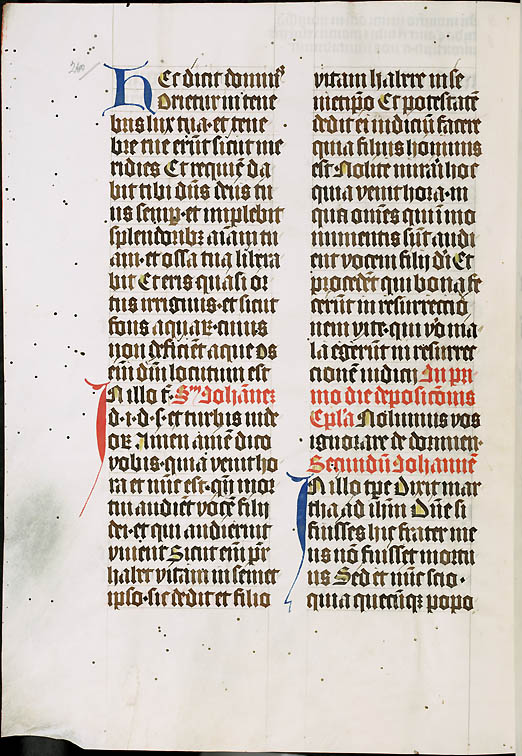 Hec dicit domin⁹
Orietur in tene
bris lux tua · et tene
bre tue erūt sicut me
ridies Et requiē da
bit tibi dn̄s deus tu
us semp̱ · et implebit
splendoribꝫ aīam tu
am · et ossa tua libera
bit Et eris quasi or
tus irriguus · et sicut
fons aquaꝝ · cuius
non deficiēt aque Os
em̄ dn̄i locutum est
In illo t̄ Sm̄ Johānez
d · i · d · s · et turbis iude
oꝝ Amen amē dico
vobis · quia venit ho
ra et nūc est · qn̄ mor
tui audiēt vocē filij
dei · et qui audierint
vivent Sicut em̄ pr̄
habet vitam in semet
ipso · sic dedit et filio
vitam habere in se
metip̄o Et potestatē
dedit ei iudiciū facere
quia filius hominis
est Nolite mirari hoc
quia venit hora · in
qua om̄es qui in mo
numentis sūt audi
ent vocem filij di Et
procedēt qui bona fe
cerūt in resurrectio
nem vite · qui v̊o ma
la egerūt in resurrec
tionē iudicij In pri
mo die deposicōnis
Epl̄a Nolumus vos
ignorare de dormien ·
Secundū Johannē
In illo tp̄e Dixit mar
tha ad ihm̄ Dn̄e si
fuisses hic frater me
us nō fuisset mortu
us Sed et nūc scio ·
quia quecūqꝫ popo